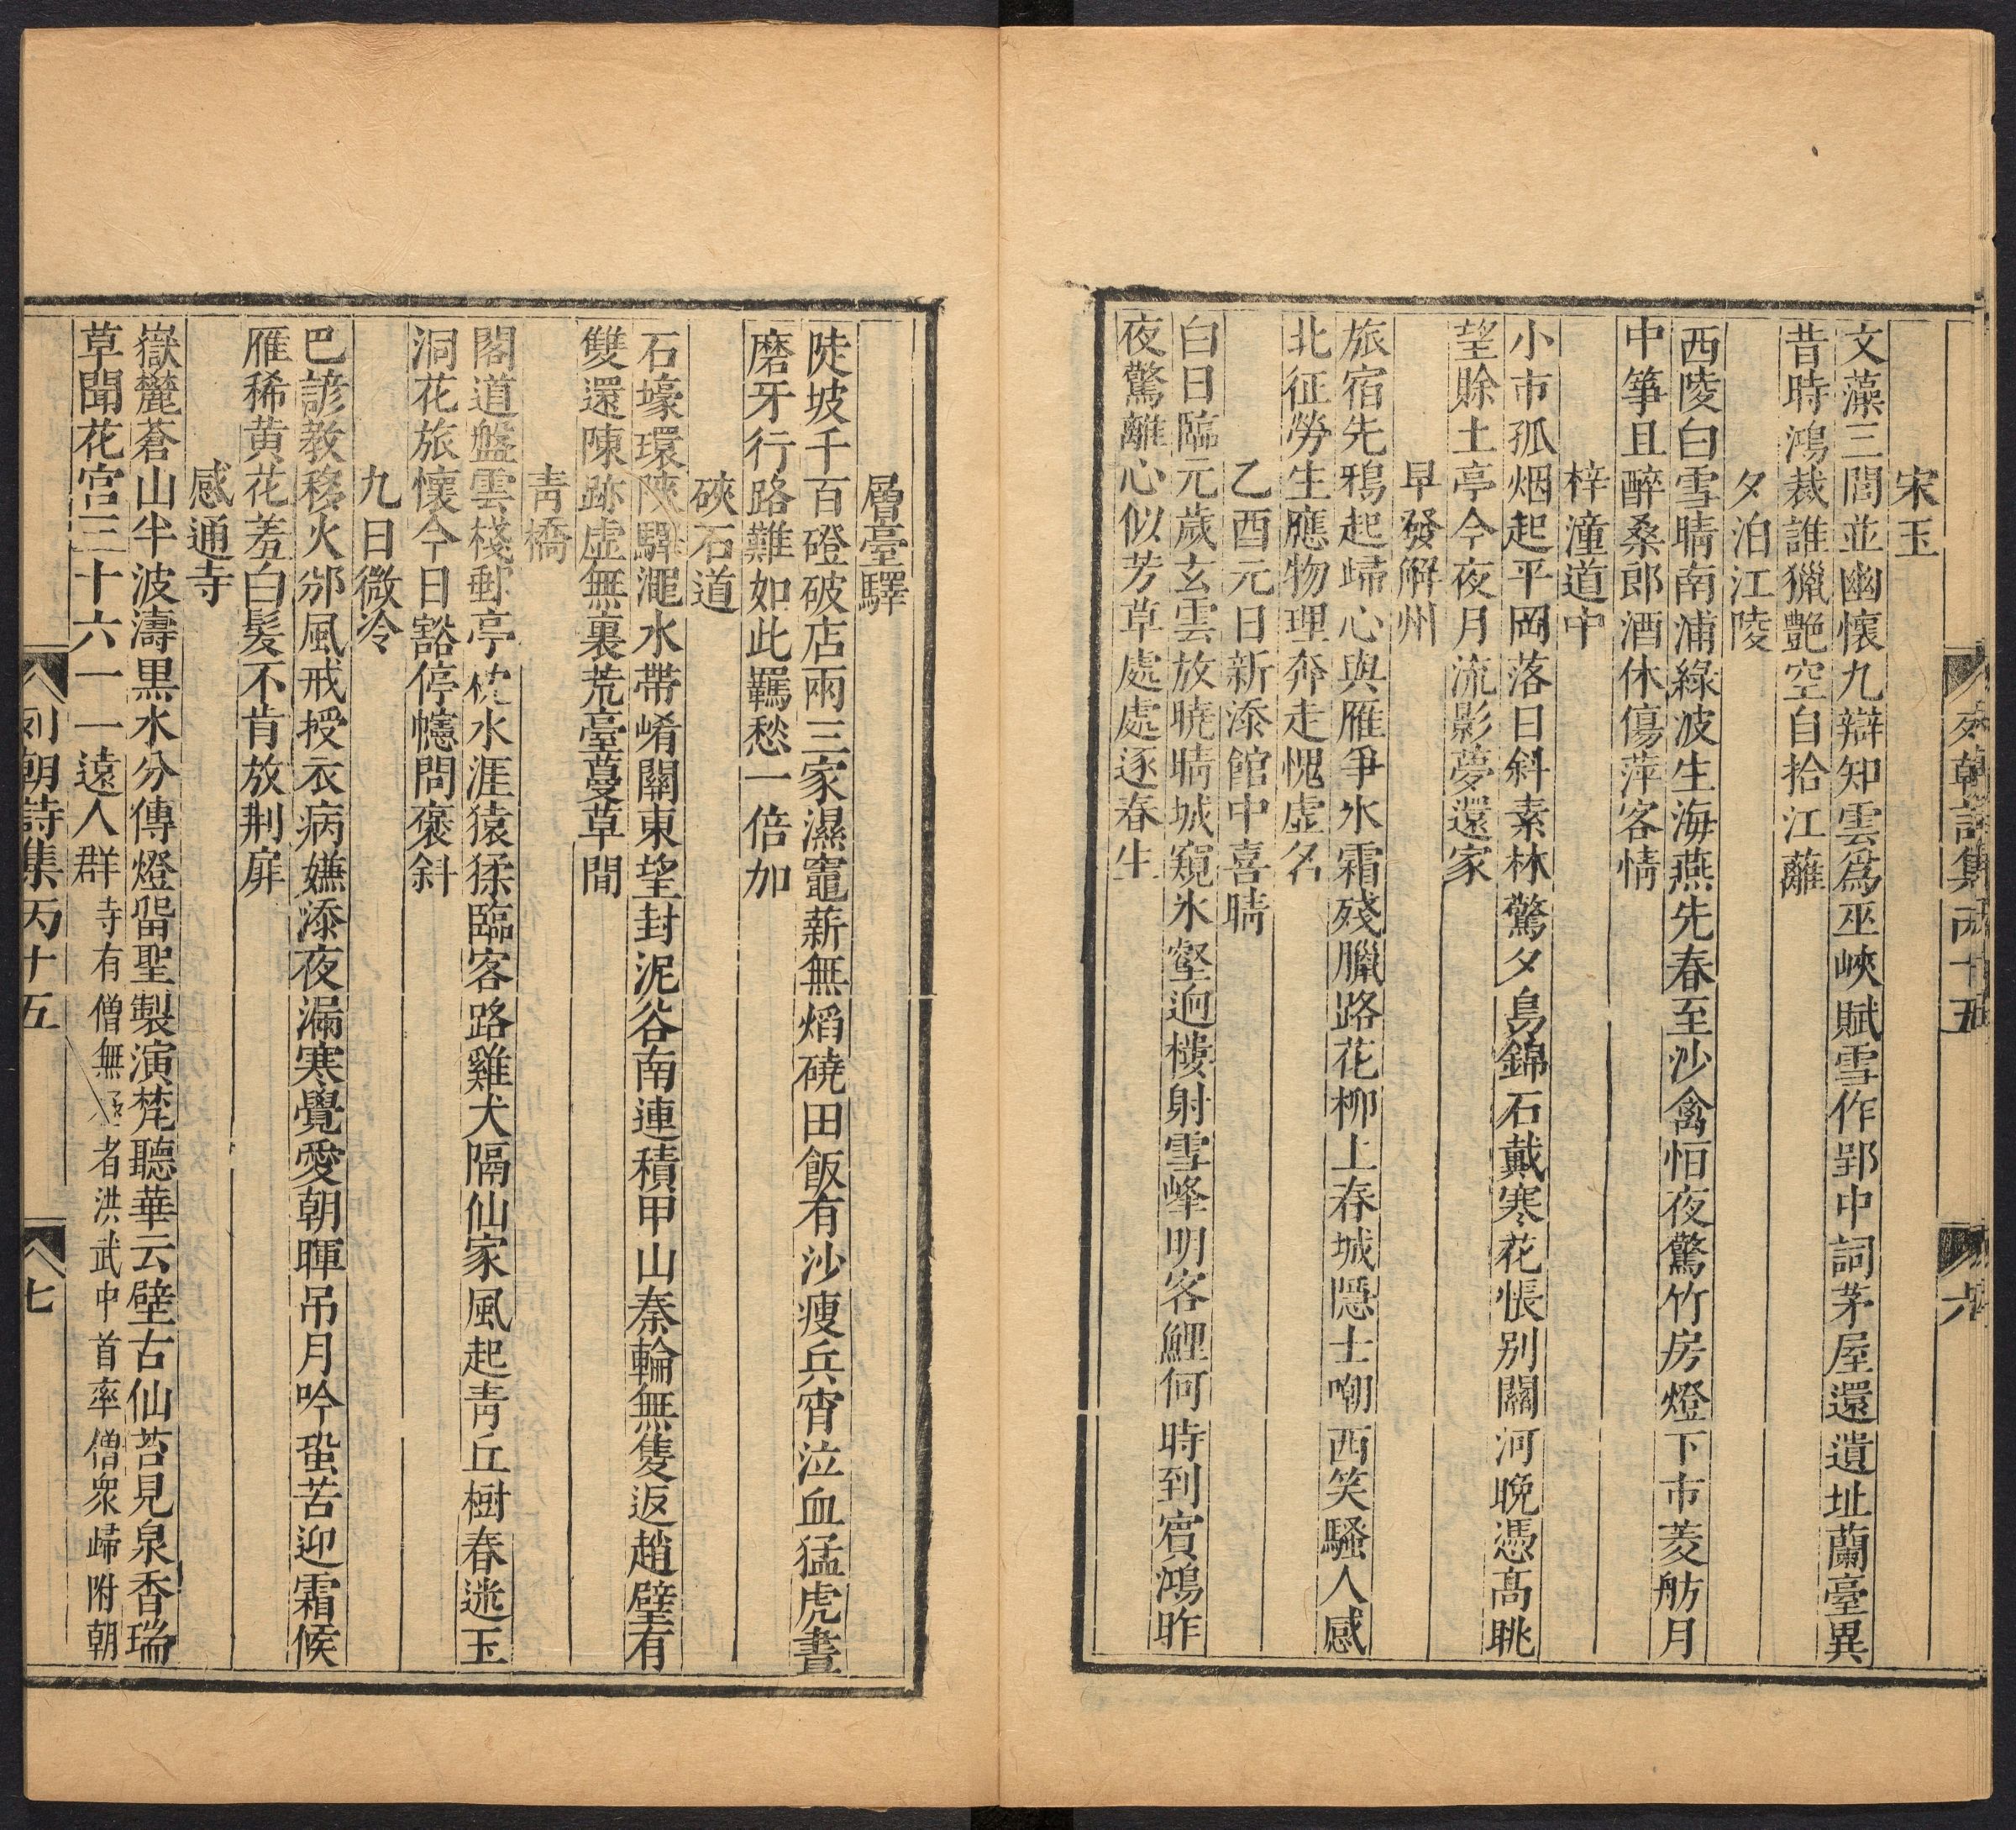 宋玉
文藻三閭並幽懷九辯知雲爲巫峽賦雪作郢中詞茅屋還遺址蘭臺異
昔時鴻裁誰獵艷空自拾江蘺
夕泊江陵
西陵白雪晴南浦綠波生海燕先春至沙禽怕夜驚竹房燈下市菱舫月
中箏且醉桑郎酒休傷萍客情
梓潼道中
小市孤烟起平岡落日斜素林驚夕鳥錦石戴寒花悵别關河晚憑高眺
望賒土亭今夜月流影夢還家
早發解州
旅宿先鴉起歸心與雁爭氷霜殘臘路花柳上春城隱士嘲西笑騷人感
北征勞生應物理奔走愧虚名
乙酉元日新添館中喜晴
白日臨元歲玄雲放曉晴城窺氷壑迥樓射雪峰明客鯉何時到賓鴻昨
夜驚離心似芳草處處逐春生
列朝詩集丙十五
六
層臺驛
陡坡千百磴破店兩三家濕竈薪無熖磽田飯有沙瘦兵宵泣血猛虎晝
磨牙行路難如此羈愁一倍加
硤石道
石壕環陝驛澠水帶崤關東望封泥谷南連積甲山秦輪無隻返趙璧有
雙還陳跡虚無裏荒臺蔓草間
青橋
閣道盤雲棧郵亭枕水涯猿猱臨客路雞犬隔仙家風起青丘樹春迷玉
洞花旅懷今日豁停幰問褒斜
九日微冷
巴諺教移火邠風戒授衣病嫌添夜漏寒覺愛朝暉吊月吟蛩苦迎霜候
雁稀黄花羞白髮不肯放荆扉
感通寺
嶽麓蒼山半波濤黒水分傳燈留聖製演梵聽華云壁古仙苔見泉香瑞
草聞花宮三十六一一遠人群寺有僧無極者洪武中首率僧衆歸附朝
列朝詩集丙十五
七